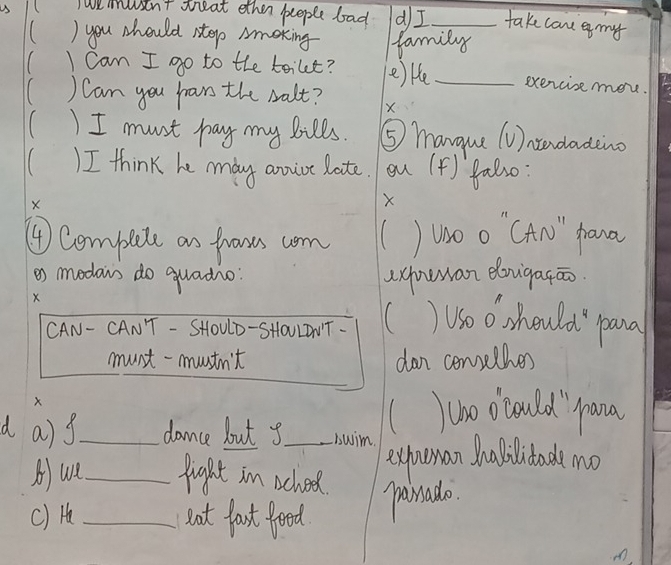 ( ) we mustn't treat other people bad
( ) you should stop smoking
( ) Can I go to the toilet?
( ) Can you pass the salt?
( ) I must pay my bills.
( ) I think he may arrive late.
x
④ Complete as frases com
os modais do quadro:
x
CAN - CAN'T - SHOULD - SHOULDN'T -
must - mustn't
x
a) I ______ dance but I ____ swim.
b) We ______ fight in school.
c) He ______ eat fast food.
d) I ______ take care of my
family
e) He ______ exercise more.
x
⑤ Marque (V) verdadeiro
ou (F) falso:
x
( ) Uso o "CAN" para
expressar obrigação.
( ) Uso o "should" para
dar conselhos
( ) Uso o "could" para
expressar habilidade no
passado.